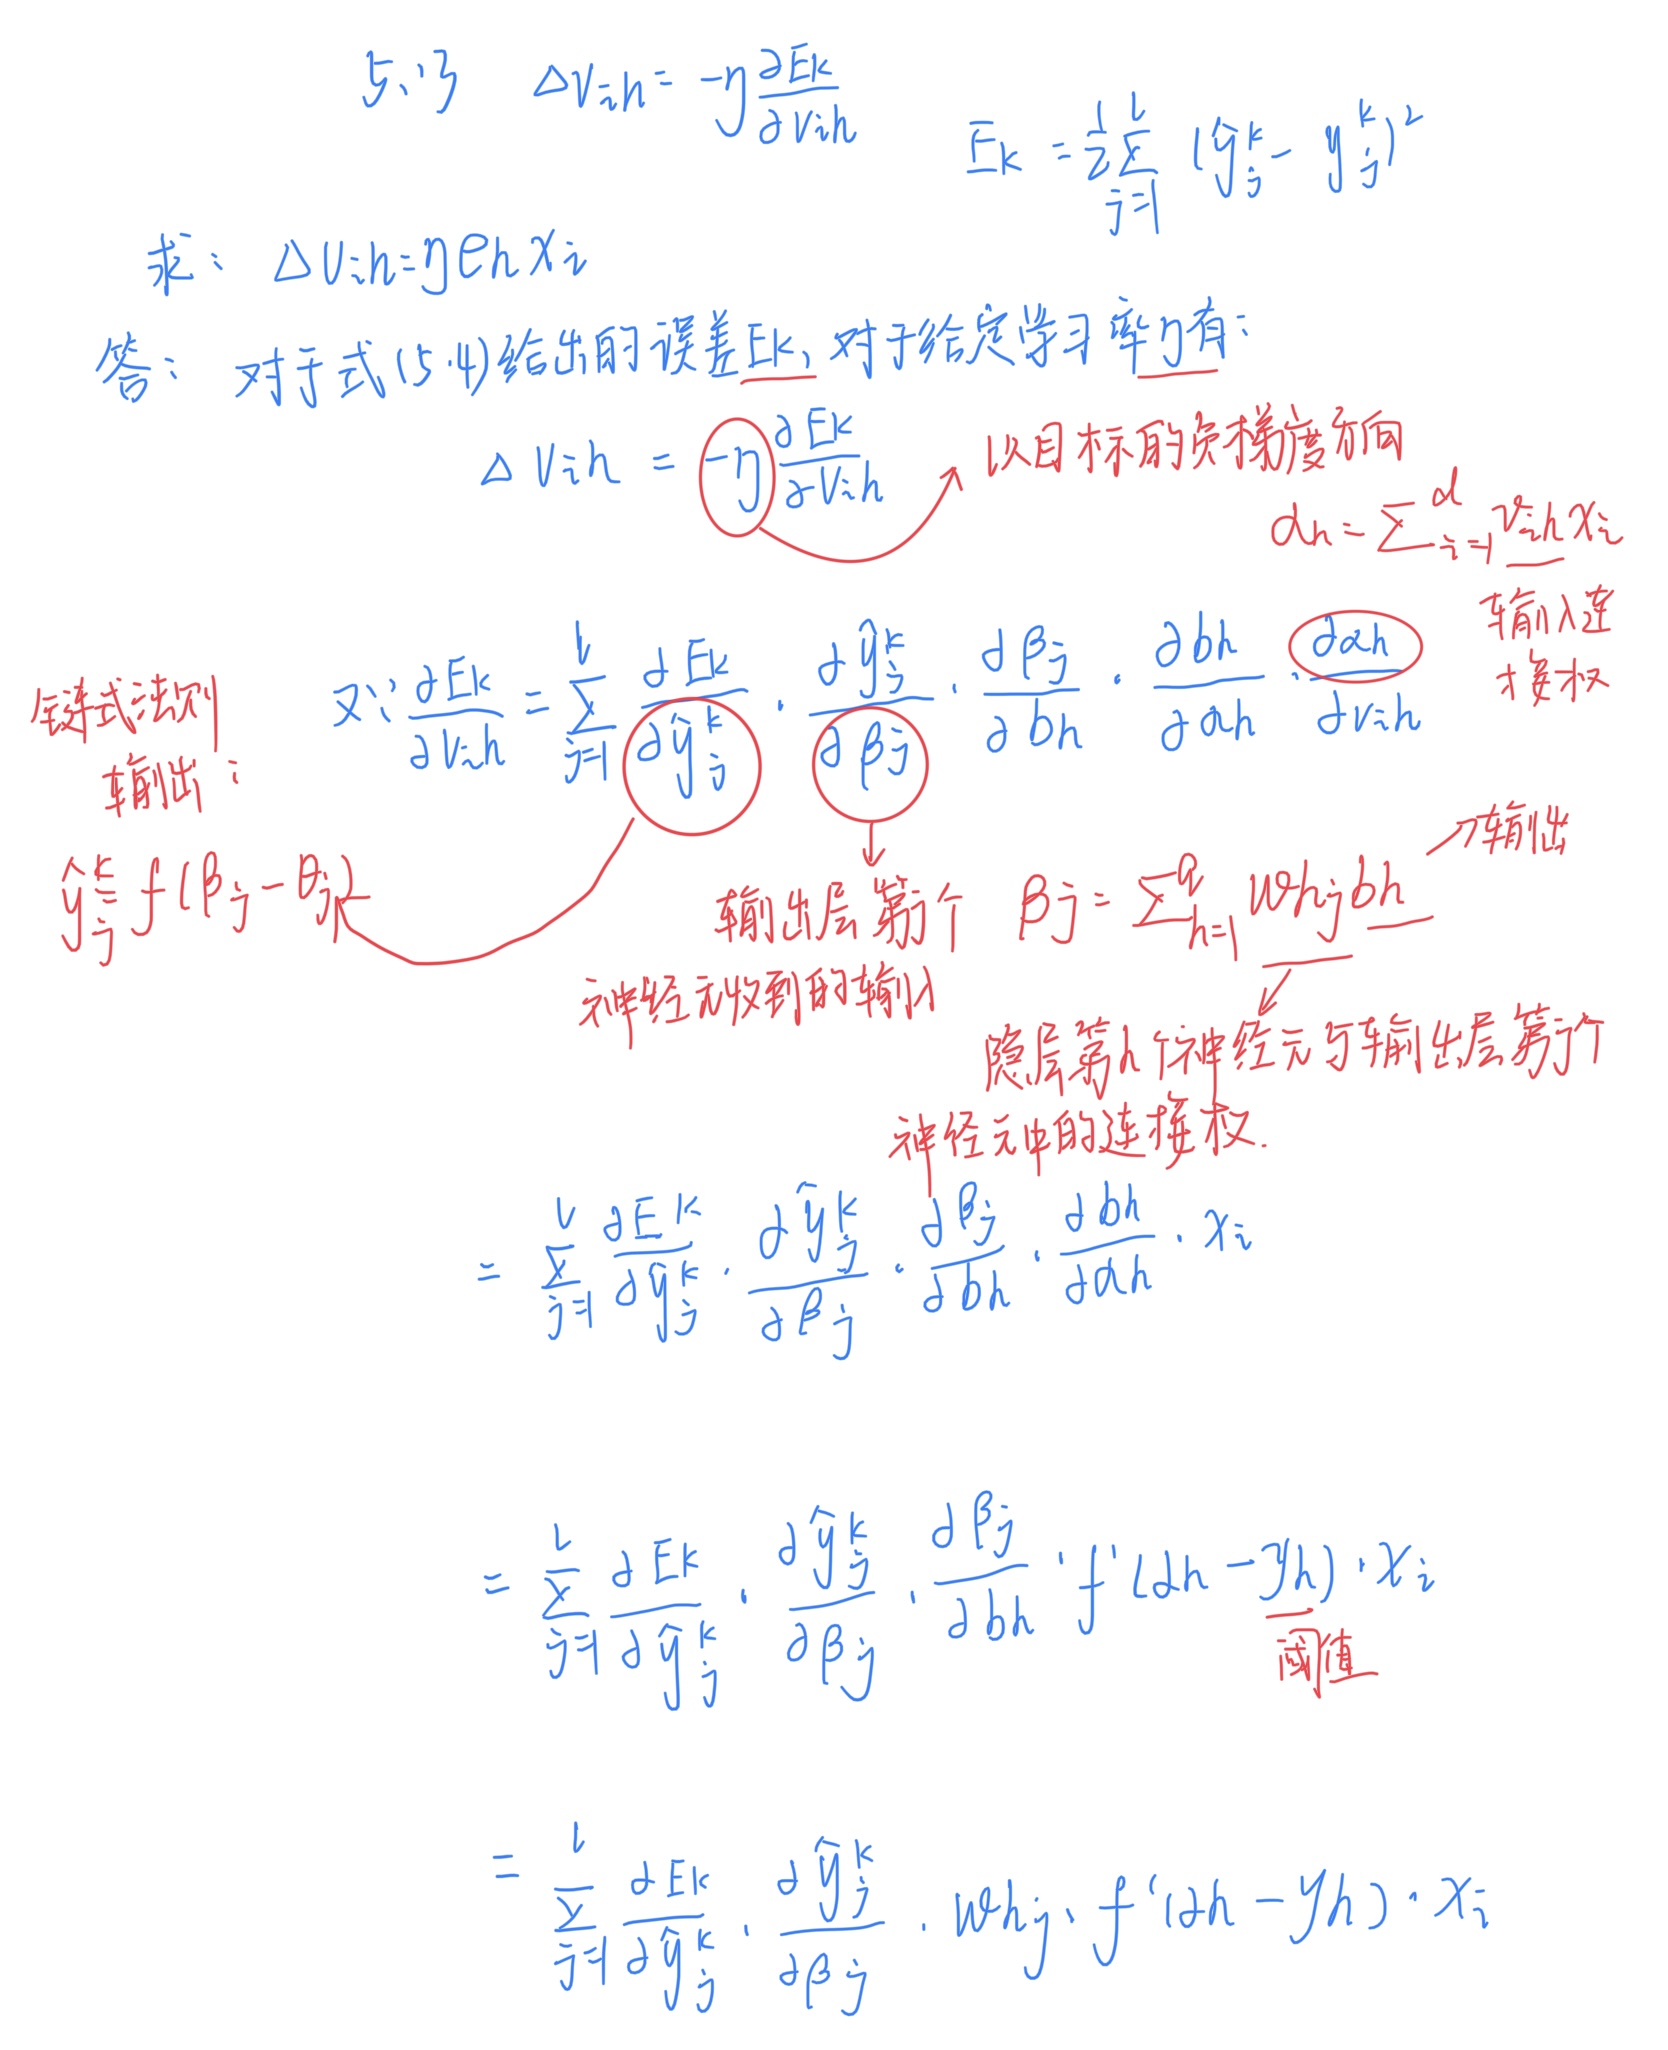 5.13 △vih = -η ∂Ek/∂vih
Ek = 1/2 ∑_{j=1}^{l} (ŷ_j^k - y_j^k)²
求: △vih=ηehxi
答: 对于式(5.4)给出的误差Ek, 对于给定学习率η有:
△vih = -η ∂Ek/∂vih
以目标的负梯度方向
αh = ∑_{i=1}^{d} vih xi
输入连
接权
链式法则
又∵ ∂Ek/∂vih = ∑_{j=1}^{l} ∂Ek/∂ŷ_j^k · ∂ŷ_j^k/∂βj · ∂βj/∂bh · ∂bh/∂αh · ∂αh/∂vih
输出:
ŷ_j^k = f(βj - θj)
输出层第j个
神经元收到的输入
βj = ∑_{h=1}^{q} whj bh
→输出
隐层第h个神经元与输出层第j个
神经元中的连接权.
= ∑_{j=1}^{l} ∂Ek/∂ŷ_j^k · ∂ŷ_j^k/∂βj · ∂βj/∂bh · ∂bh/∂αh · xi
= ∑_{j=1}^{l} ∂Ek/∂ŷ_j^k · ∂ŷ_j^k/∂βj · ∂βj/∂bh · f'(αh - γh) · xi
阈值
= ∑_{j=1}^{l} ∂Ek/∂ŷ_j^k · ∂ŷ_j^k/∂βj · whj · f'(αh - γh) · xi